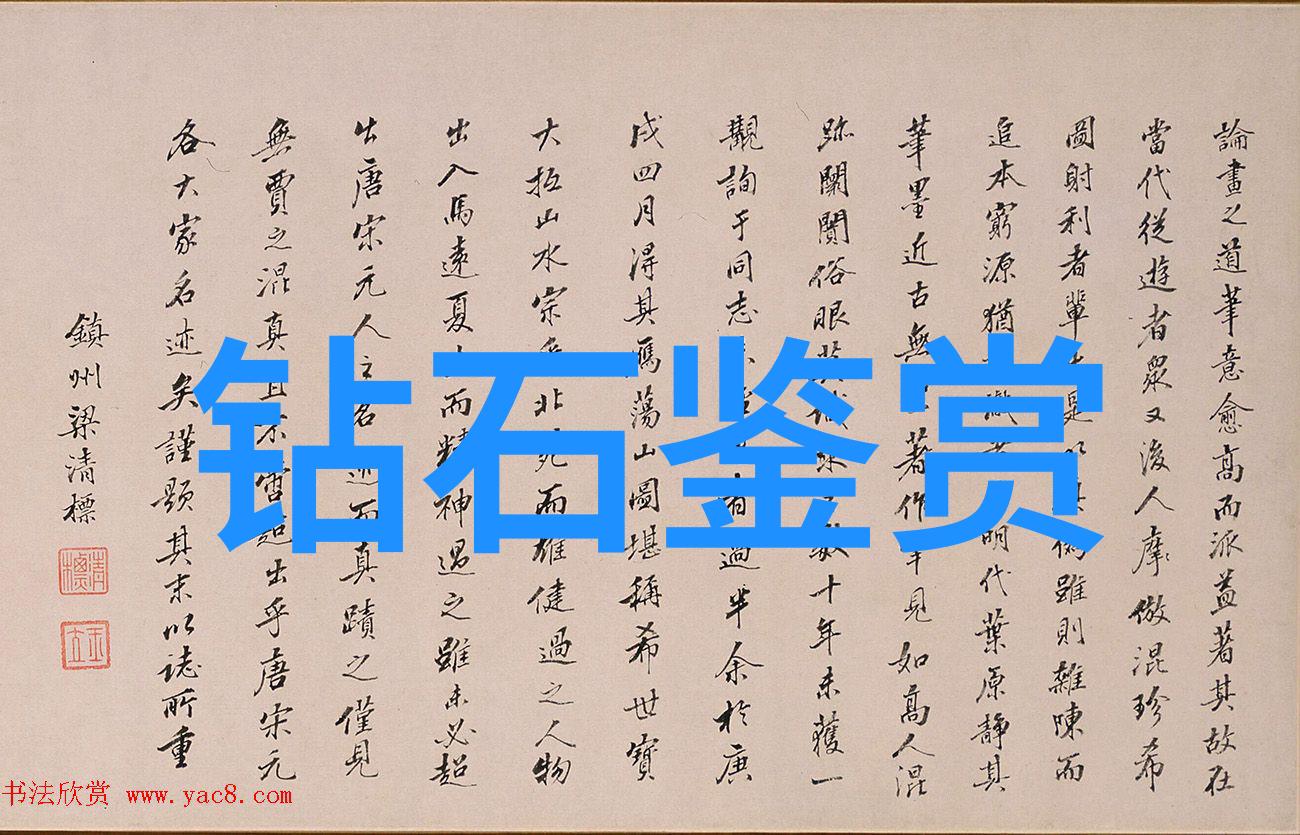 論畫之道筆意愈高而派益著其故在
當代從遊者眾又後人摩倣混珍希
圖射利者輩偽雖則雜陳而
追本窮源猶明代葉原靜其
筆墨近古無著作罕見如高人混
跡闤闠俗眼莫識十年未獲一
觀詢于同志過半余於庚
戌四月得其雁蕩山圖堪稱希世寶
大抵山水宗北苑而雄健過之人物
出入馬遠夏而精神過之雖未必超
出唐宋元人之名迹而真蹟之僅見
無賈之混真且不啻超出乎唐宋元
各大家名迹矣謹題其末以誌所重
鎮州梁清標
清標
玉立
钻石鉴赏
书法欣赏 www.yac8.com